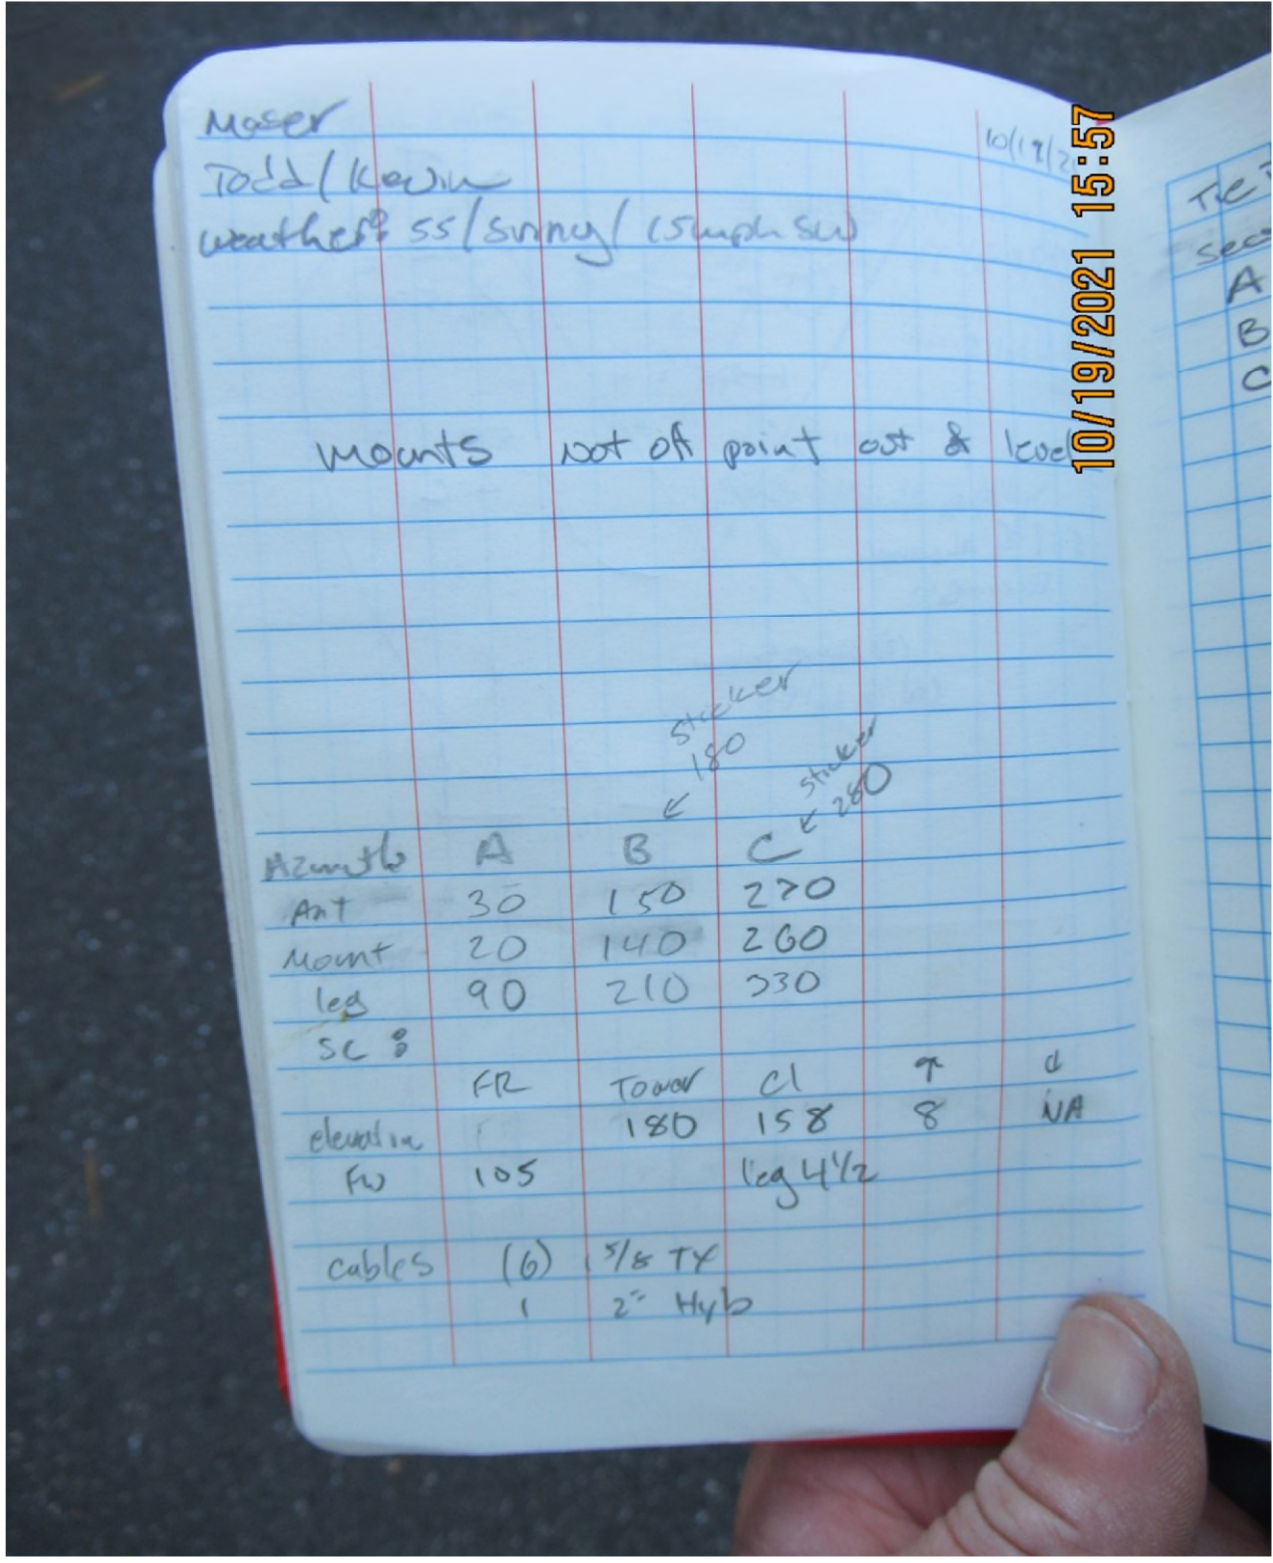 Maser
10/19/2
Todd/Kevin
weather: 55/Sunny/15mph SW
Mounts Not off point out & level
Sticker
180
Sticker
280
Azimuth A B C
Ant 30 150 270
Mount 20 140 260
leg 90 210 330
SC :
FR Tower Cl ↑ d
elevation 180 158 8 NA
FW 105 leg 4 1/2
Cables (6) 1 5/8 TX
1 2" Hyb
10/19/2021 15:57
A
B
C